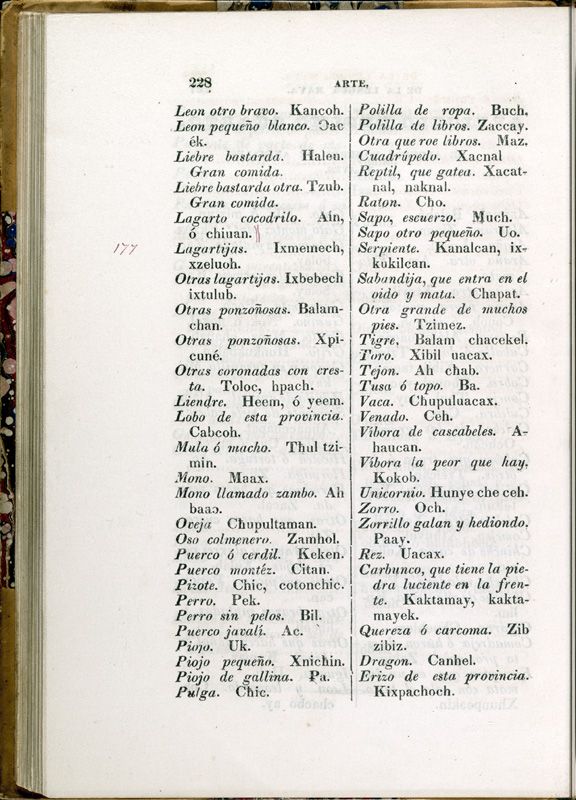 228
ARTE.
Leon otro bravo. Kancoh.
Leon pequeño blanco. Ɔac
ék.
Liebre bastarda. Haleu.
Gran comida.
Liebre bastarda otra. Tzub.
Gran comida.
Lagarto cocodrilo. Ain,
ó chiuan.
177
Lagartijas. Ixmemech,
xzeluoh.
Otras lagartijas. Ixbebech
ixtulub.
Otras ponzoñosas. Balam-
chan.
Otras ponzoñosas. Xpi-
cuné.
Otras coronadas con cres-
ta. Toloc, hpach.
Liendre. Heem, ó yeem.
Lobo de esta provincia.
Cabcoh.
Mula ó macho. Thul tzi-
min.
Mono. Maax.
Mono llamado zambo. Ah
baaɔ.
Oveja Chupultaman.
Oso colmenero. Zamhol.
Puerco ó cerdil. Keken.
Puerco montéz. Citan.
Pizote. Chic, cotonchic.
Perro. Pek.
Perro sin pelos. Bil.
Puerco javalí. Ac.
Piojo. Uk.
Piojo pequeño. Xnichin.
Piojo de gallina. Pa.
Pulga. Chic.
Polilla de ropa. Buch.
Polilla de libros. Zaccay.
Otra que roe libros. Maz.
Cuadrúpedo. Xacnal
Reptil, que gatea. Xacat-
nal, naknal.
Raton. Cho.
Sapo, escuerzo. Much.
Sapo otro pequeño. Uo.
Serpiente. Kanalcan, ix-
kukilcan.
Sabandija, que entra en el
oido y mata. Chapat.
Otra grande de muchos
pies. Tzimez.
Tigre, Balam chacekel.
Toro. Xibil uacax.
Tejon. Ah chab.
Tusa ó topo. Ba.
Vaca. Chupuluacax.
Venado. Ceh.
Víbora de cascabeles. A-
haucan.
Víbora la peor que hay.
Kokob.
Unicornio. Hunye che ceh.
Zorro. Och.
Zorrillo galan y hediondo.
Paay.
Rez. Uacax.
Carbunco, que tiene la pie-
dra luciente en la fren-
te. Kaktamay, kakta-
mayek.
Quereza ó carcoma. Zib
zibiz.
Dragon. Canhel.
Erizo de esta provincia.
Kixpachoch.